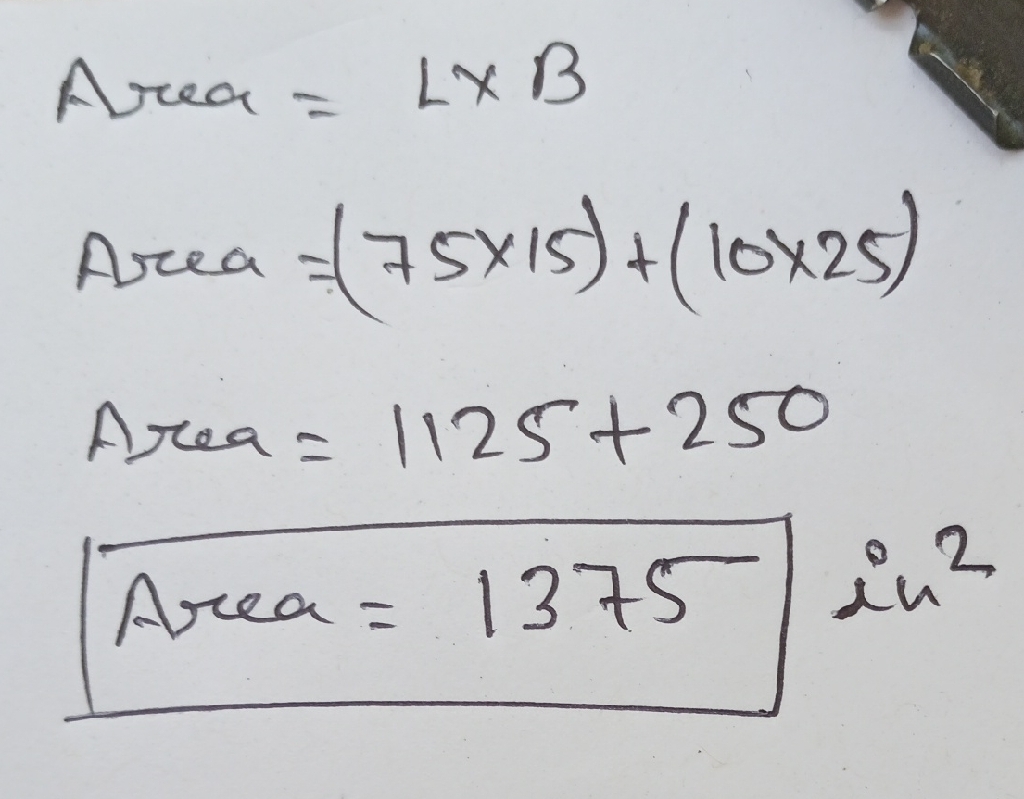 Area = L×B
Area =(75×15)+(10×25)
Area = 1125+250
Area = 1375 in²